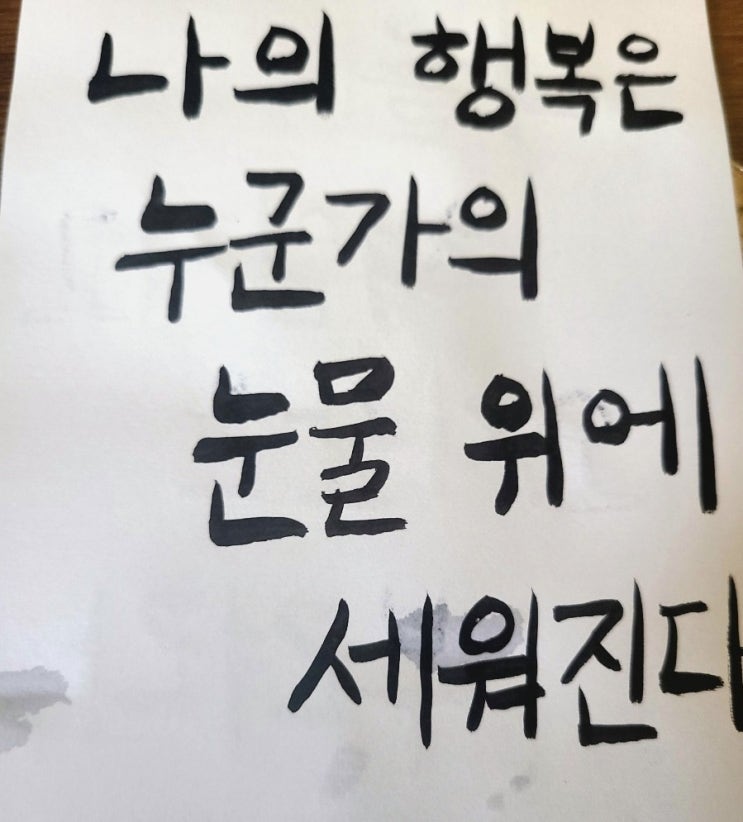 나의 행복은
누군가의
눈물 위에
세워진다